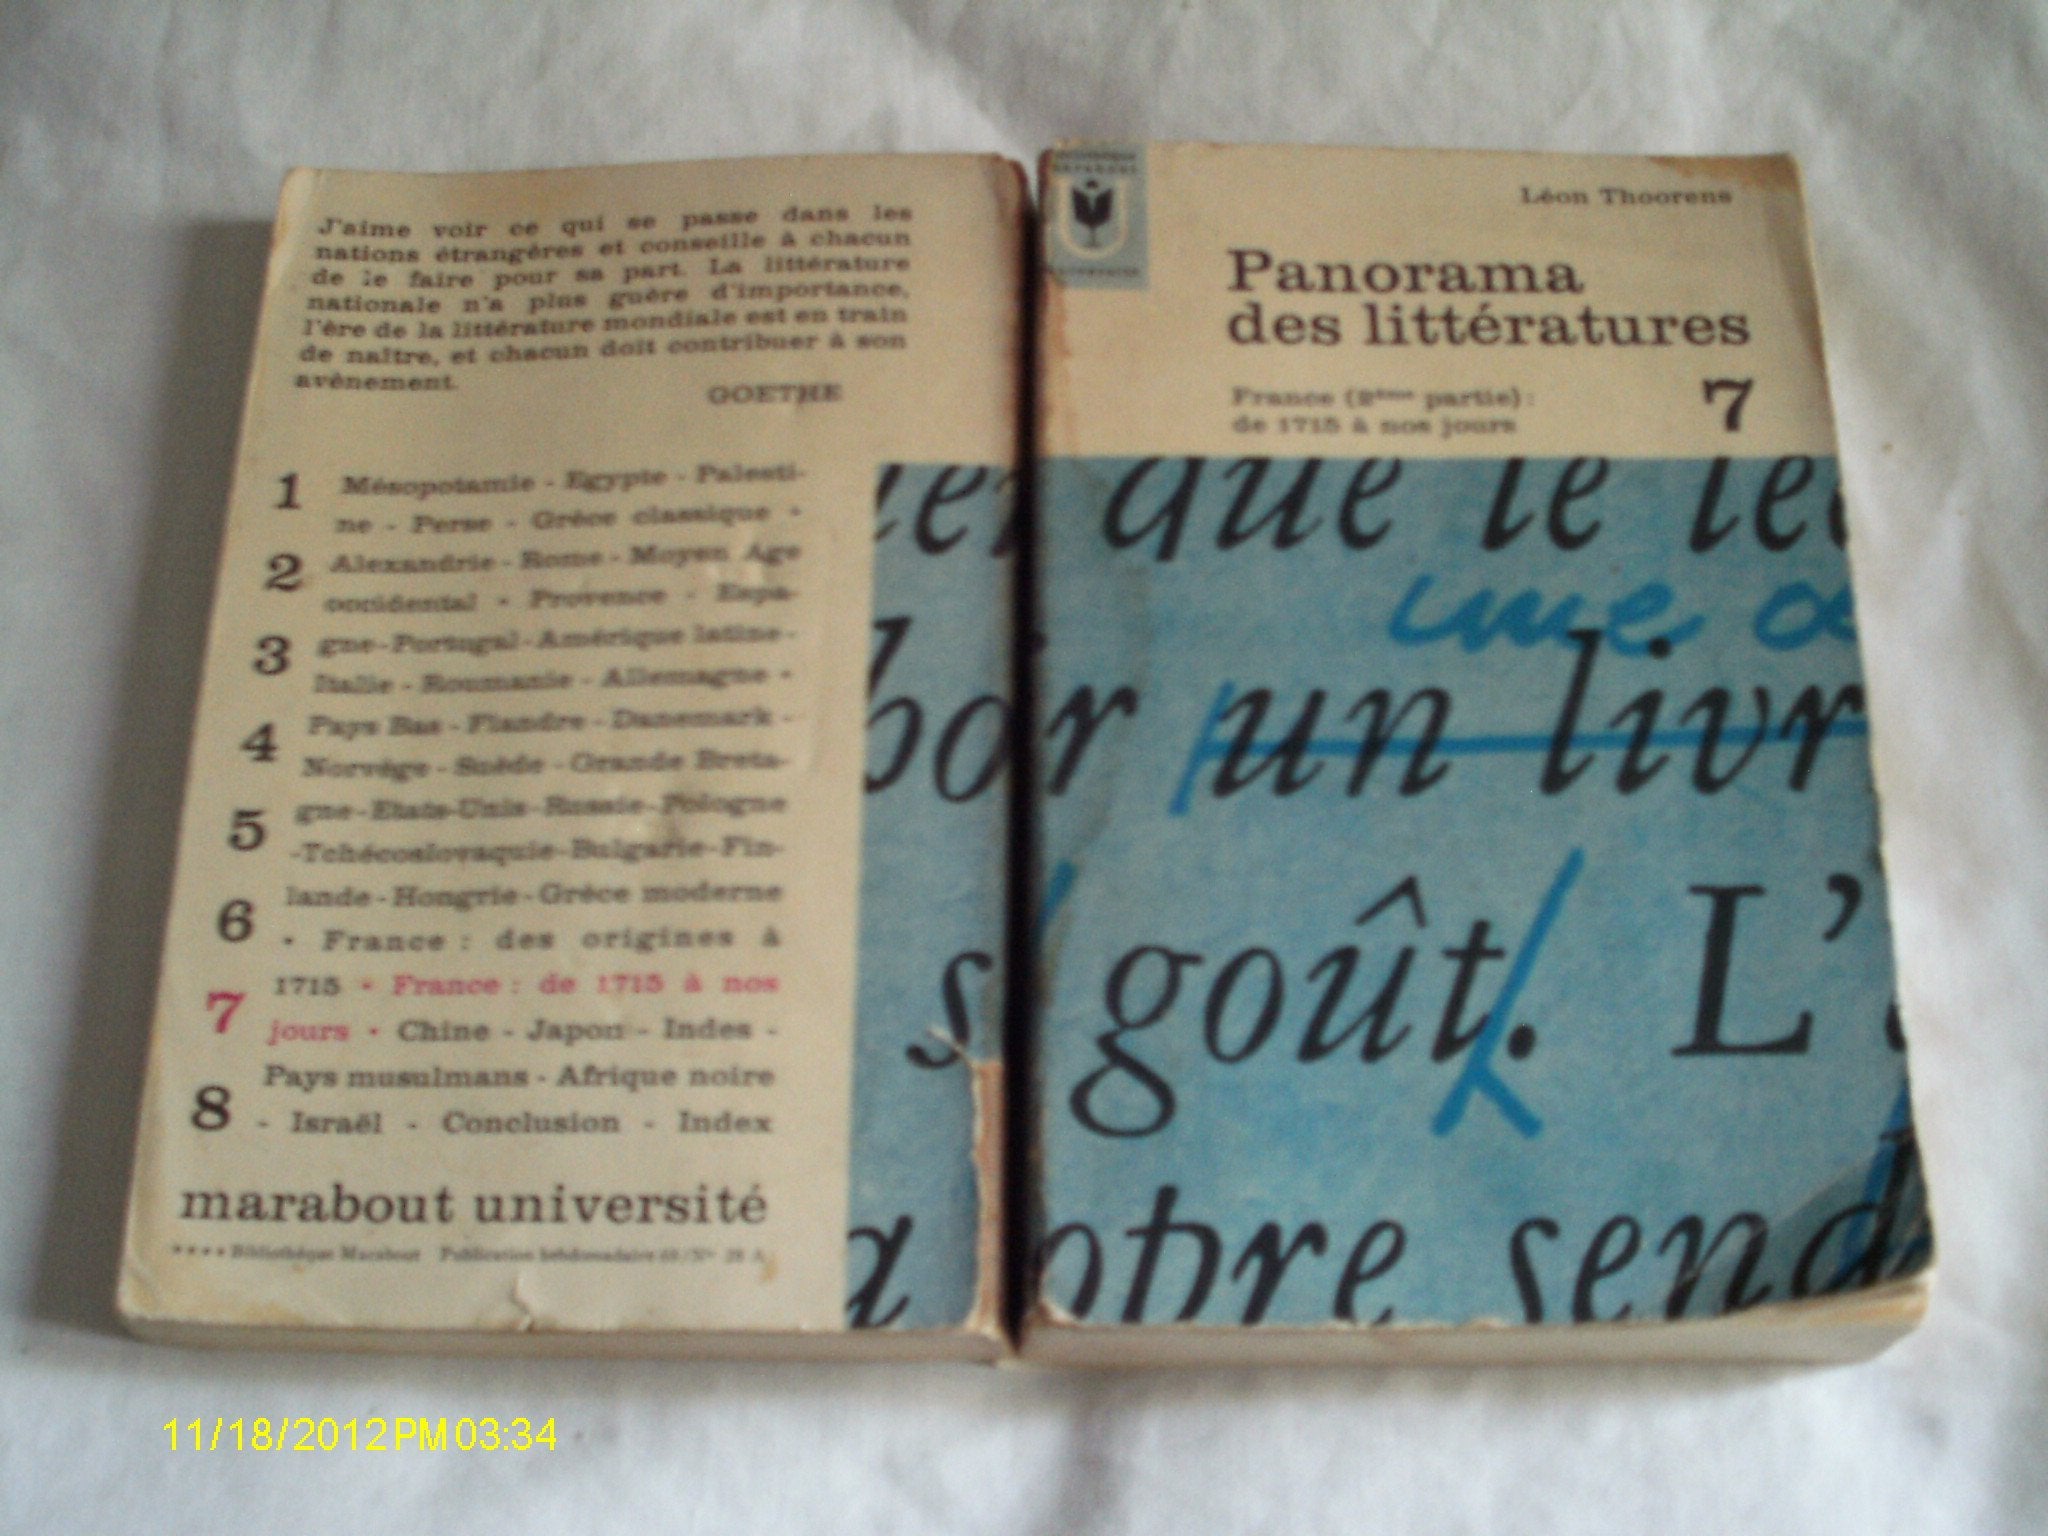 J'aime voir ce qui se passe dans les
nations étrangères et conseille à chacun
de le faire pour sa part. La littérature
nationale n'a plus guère d'importance,
l'ère de la littérature mondiale est en train
de naître, et chacun doit contribuer à son
avènement.
GOETHE
1 Mésopotamie - Egypte - Palesti-
ne - Perse - Grèce classique •
2 Alexandrie - Rome - Moyen Age
occidental • Provence - Espa-
3 gne-Portugal-Amérique latine-
Italie - Roumanie - Allemagne •
4 Pays Bas - Flandre - Danemark -
Norvège - Suède - Grande Breta-
5 gne-Etats-Unis-Russie-Pologne
-Tchécoslovaquie-Bulgarie-Fin-
6 lande-Hongrie-Grèce moderne
• France : des origines à
7 1715 • France : de 1715 à nos
jours • Chine - Japon - Indes -
8 Pays musulmans - Afrique noire
- Israël - Conclusion - Index
marabout université
**** Bibliothèque Marabout Publication hebdomadaire
Léon Thoorens
Panorama
des littératures
7
France (2ème partie) :
de 1715 à nos jours
que le lec
une
bor un livr
s goût. L'
a otre send
11/18/2012 PM 03:34